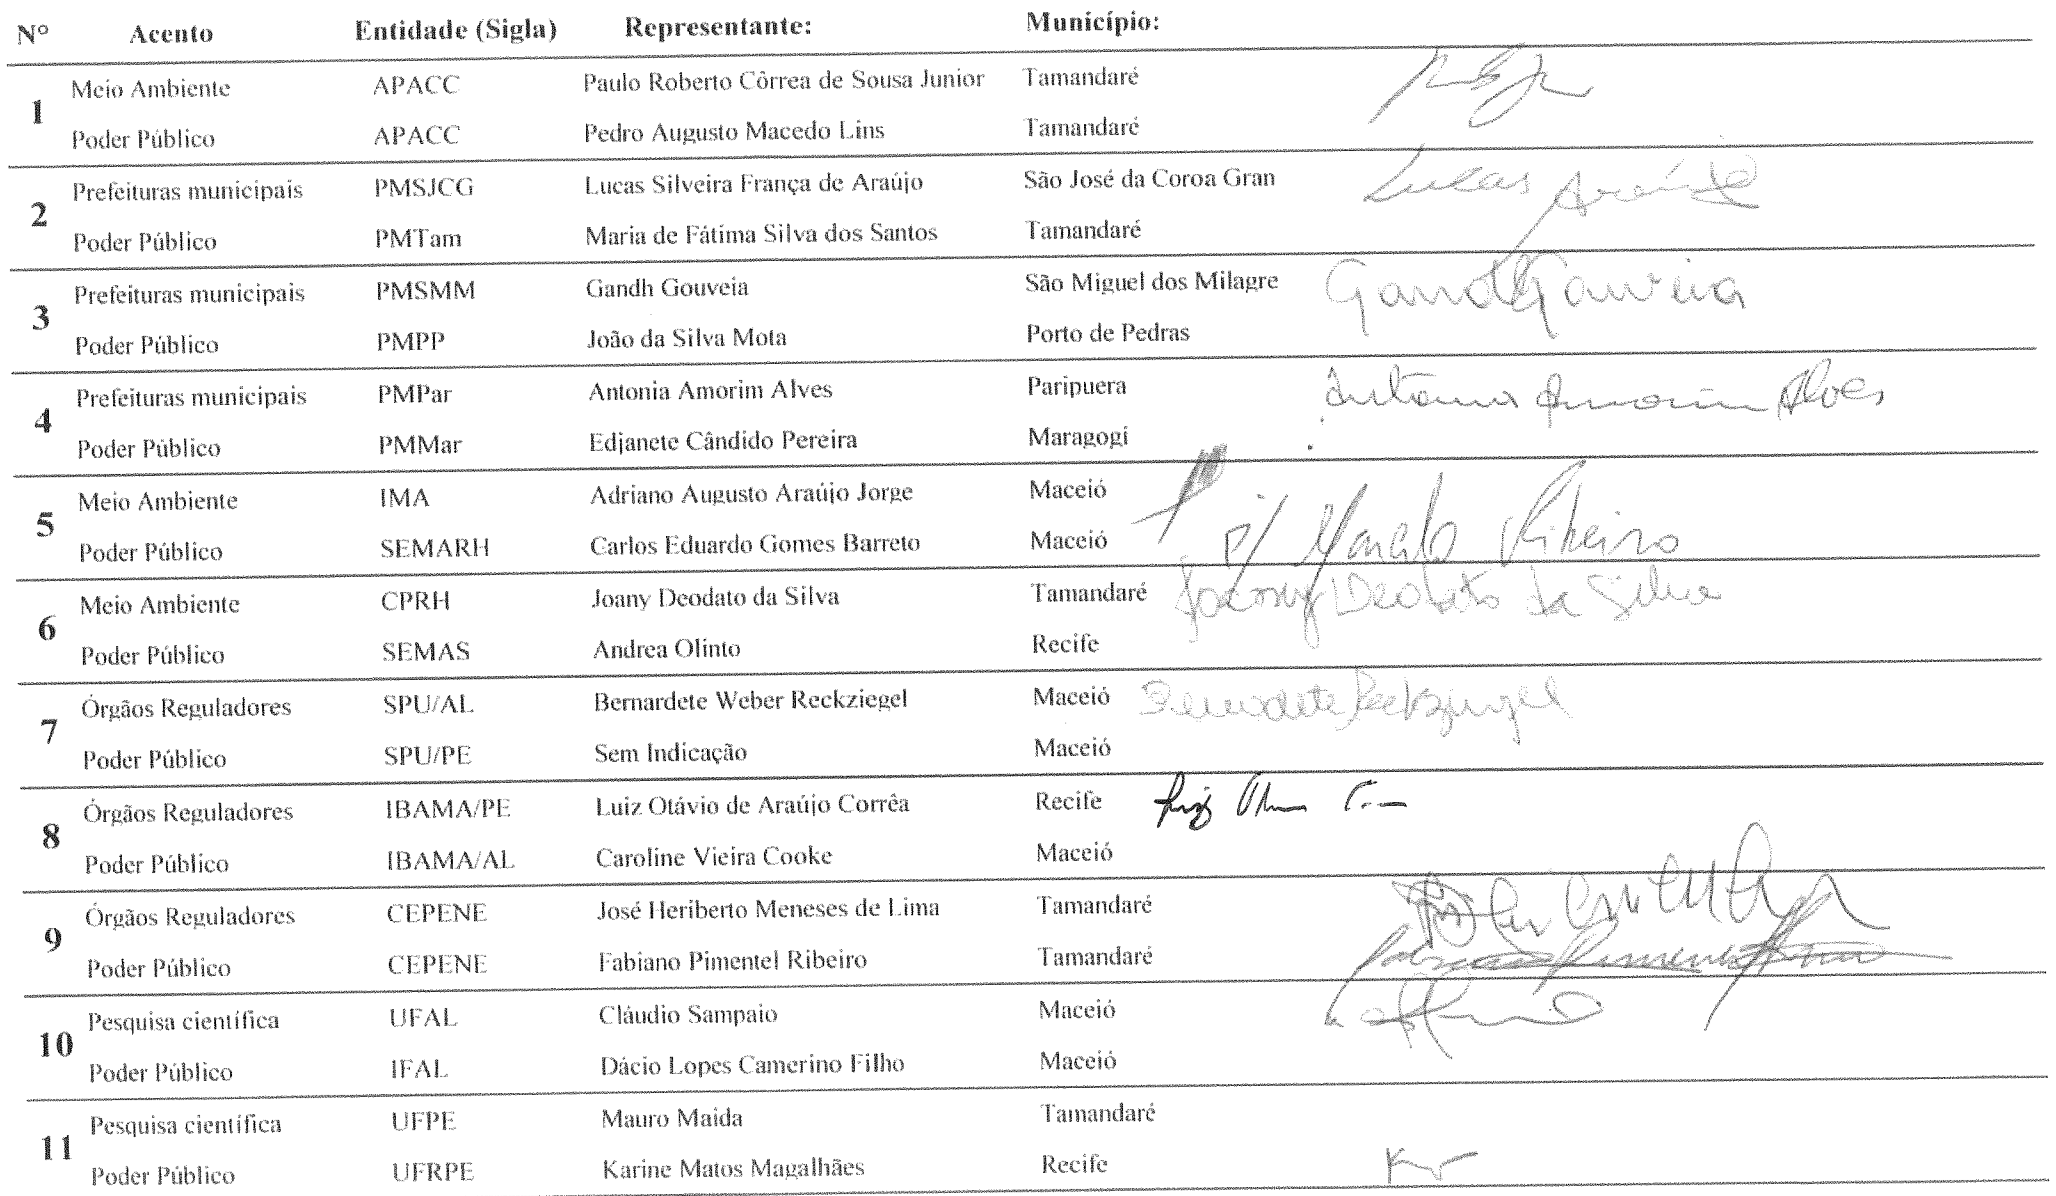 Nº Acento Entidade (Sigla) Representante: Município:
1
Meio Ambiente APACC Paulo Roberto Côrrea de Sousa Junior Tamandaré
Poder Público APACC Pedro Augusto Macedo Lins Tamandaré
2
Prefeituras municipais PMSJCG Lucas Silveira França de Araújo São José da Coroa Gran Lucas Araújo
Poder Público PMTam Maria de Fátima Silva dos Santos Tamandaré
3
Prefeituras municipais PMSMM Gandh Gouveia São Miguel dos Milagre Gandh Gouveia
Poder Público PMPP João da Silva Mota Porto de Pedras
4
Prefeituras municipais PMPar Antonia Amorim Alves Paripuera Antonia Amorim Alves
Poder Público PMMar Edjanete Cândido Pereira Maragogi
5
Meio Ambiente IMA Adriano Augusto Araújo Jorge Maceió
Poder Público SEMARH Carlos Eduardo Gomes Barreto Maceió P/ Ribeiro
6
Meio Ambiente CPRH Joany Deodato da Silva Tamandaré Joany Deodato da Silva
Poder Público SEMAS Andrea Olinto Recife
7
Órgãos Reguladores SPU/AL Bernardete Weber Reckziegel Maceió Bernardete Reckziegel
Poder Público SPU/PE Sem Indicação Maceió
8
Órgãos Reguladores IBAMA/PE Luiz Otávio de Araújo Corrêa Recife Luiz
Poder Público IBAMA/AL Caroline Vieira Cooke Maceió
9
Órgãos Reguladores CEPENE José Heriberto Meneses de Lima Tamandaré
Poder Público CEPENE Fabiano Pimentel Ribeiro Tamandaré
10
Pesquisa científica UFAL Cláudio Sampaio Maceió
Poder Público IFAL Dácio Lopes Camerino Filho Maceió
11
Pesquisa científica UFPE Mauro Maida Tamandaré
Poder Público UFRPE Karine Matos Magalhães Recife